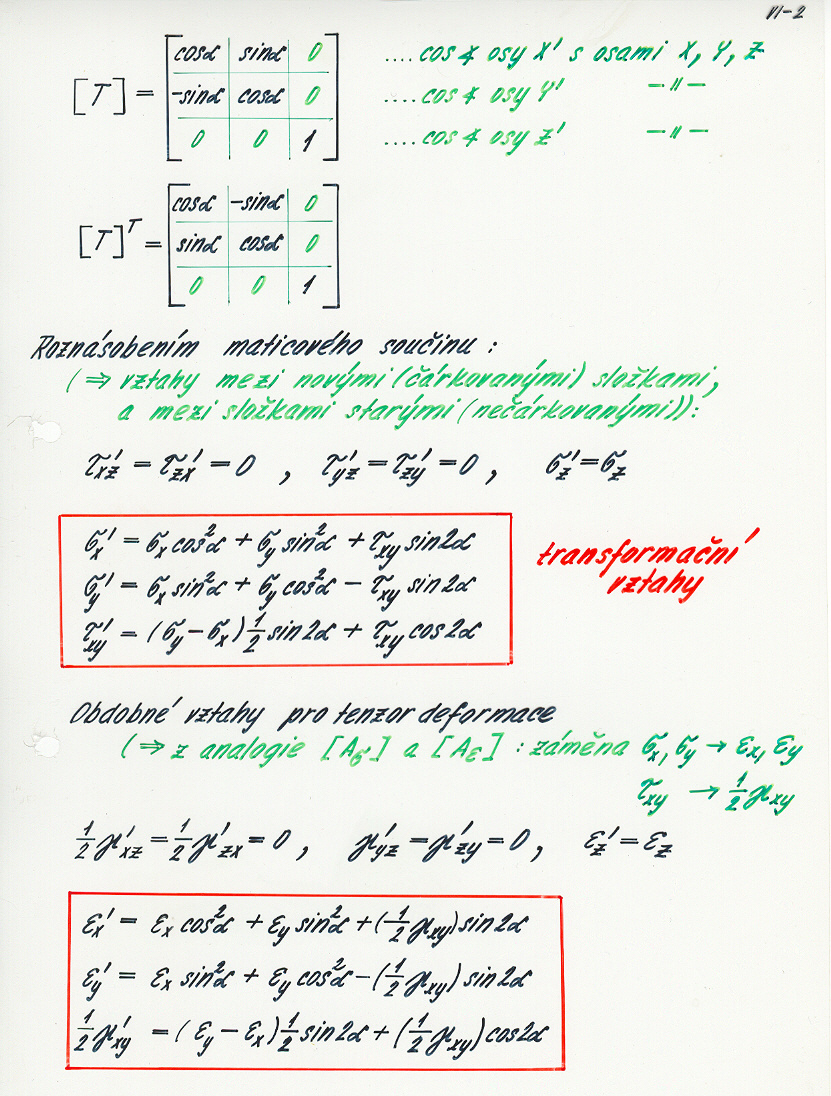 VI-2
[T] = [cosα sinα 0 .... cos ∢ osy X' s osami X, Y, Z
-sinα cosα 0 .... cos ∢ osy Y' —〃—
0 0 1] .... cos ∢ osy Z' —〃—
[T]ᵀ = [cosα -sinα 0
sinα cosα 0
0 0 1]
Roznásobením maticového součinu :
(⇒ vztahy mezi novými (čárkovanými) složkami,
a mezi složkami starými (nečárkovanými)):
τ'xz = τ'zx = 0 , τ'yz = τ'zy = 0 , σz' = σz
σx' = σx cos²α + σy sin²α + τxy sin2α
σy' = σx sin²α + σy cos²α − τxy sin2α
τ'xy = (σy − σx) 1/2 sin2α + τxy cos2α
transformační
vztahy
Obdobné vztahy pro tenzor deformace
(⇒ z analogie [Aσ] a [Aε] : záměna σx, σy → εx, εy
τxy → 1/2 γxy
1/2 γ'xz = 1/2 γ'zx = 0 , γ'yz = γ'zy = 0 , εz' = εz
εx' = εx cos²α + εy sin²α + (1/2 γxy) sin2α
εy' = εx sin²α + εy cos²α − (1/2 γxy) sin2α
1/2 γ'xy = (εy − εx) 1/2 sin2α + (1/2 γxy) cos2α